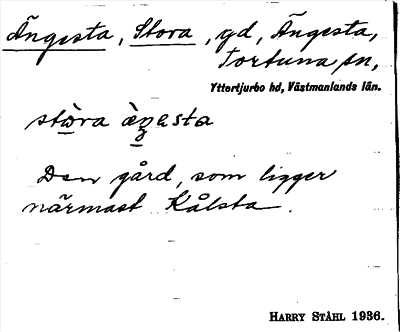 Ängesta, Stora, gd, Ängesta,
Tortuna sn,
Yttertjurbo hd, Västmanlands län.
stòra ὰŋesta
Den gård, som ligger
närmast Kålsta.
HARRY STÅHL 1936.